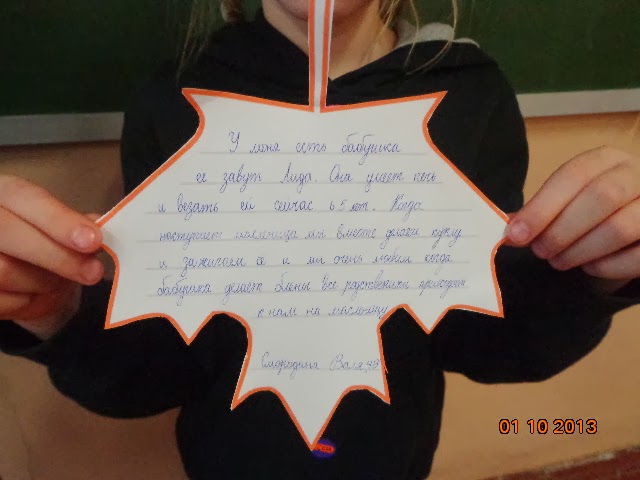 У меня есть бабушка
ее завут Лида. Она умеет печь
и везать ей сейчас 65 лет. Когда
наступает масленица мы вместе делаем куклу
и зажигаем ее и мы очень любим когда
бабушка делает блены все родственики приходят
к нам на масленицу
Смородина Валя
01 10 2013